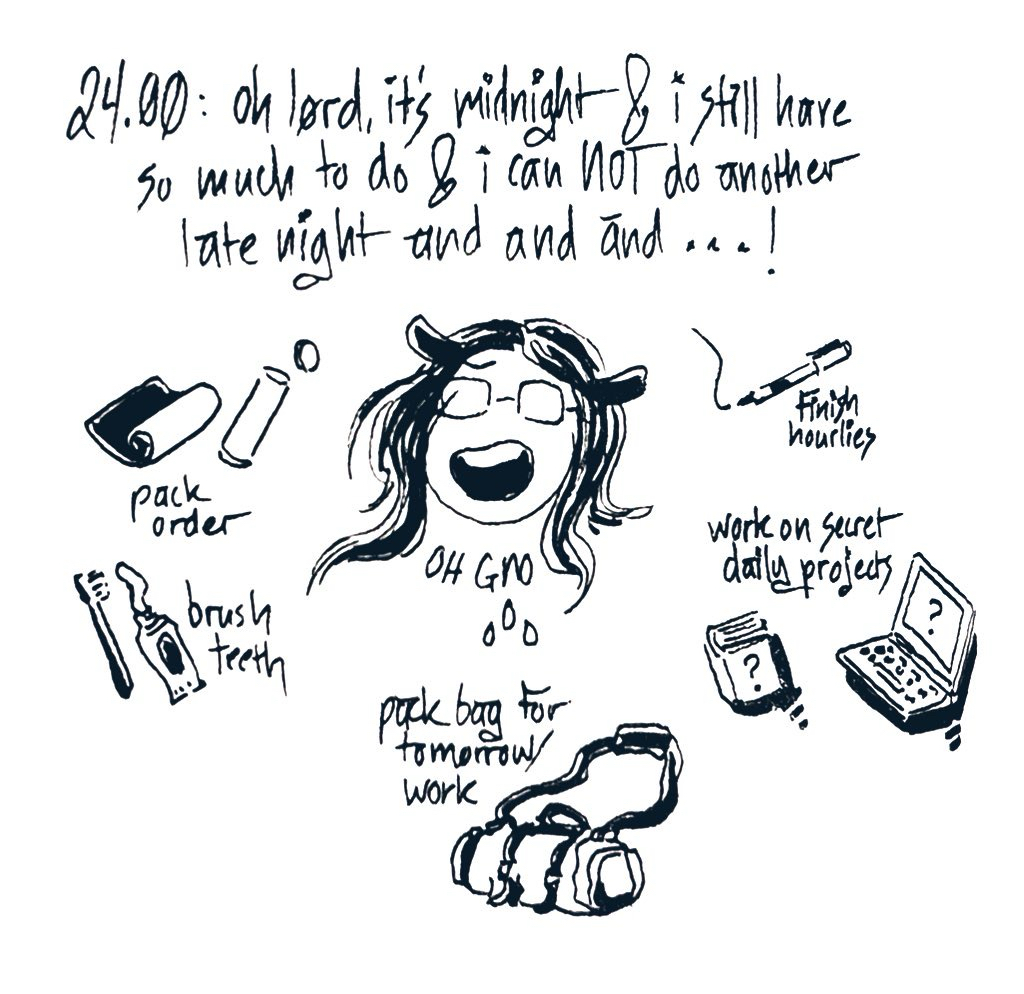 24.00: oh lørd, it's midnight & i still have
so much to do & i can NOT do another
late night and and ānd ...!
pack
order
Finish
hourlies
OH GNO
work on secret
daily projects
?
?
brush
teeth
pack bag for
tomorrow/
work